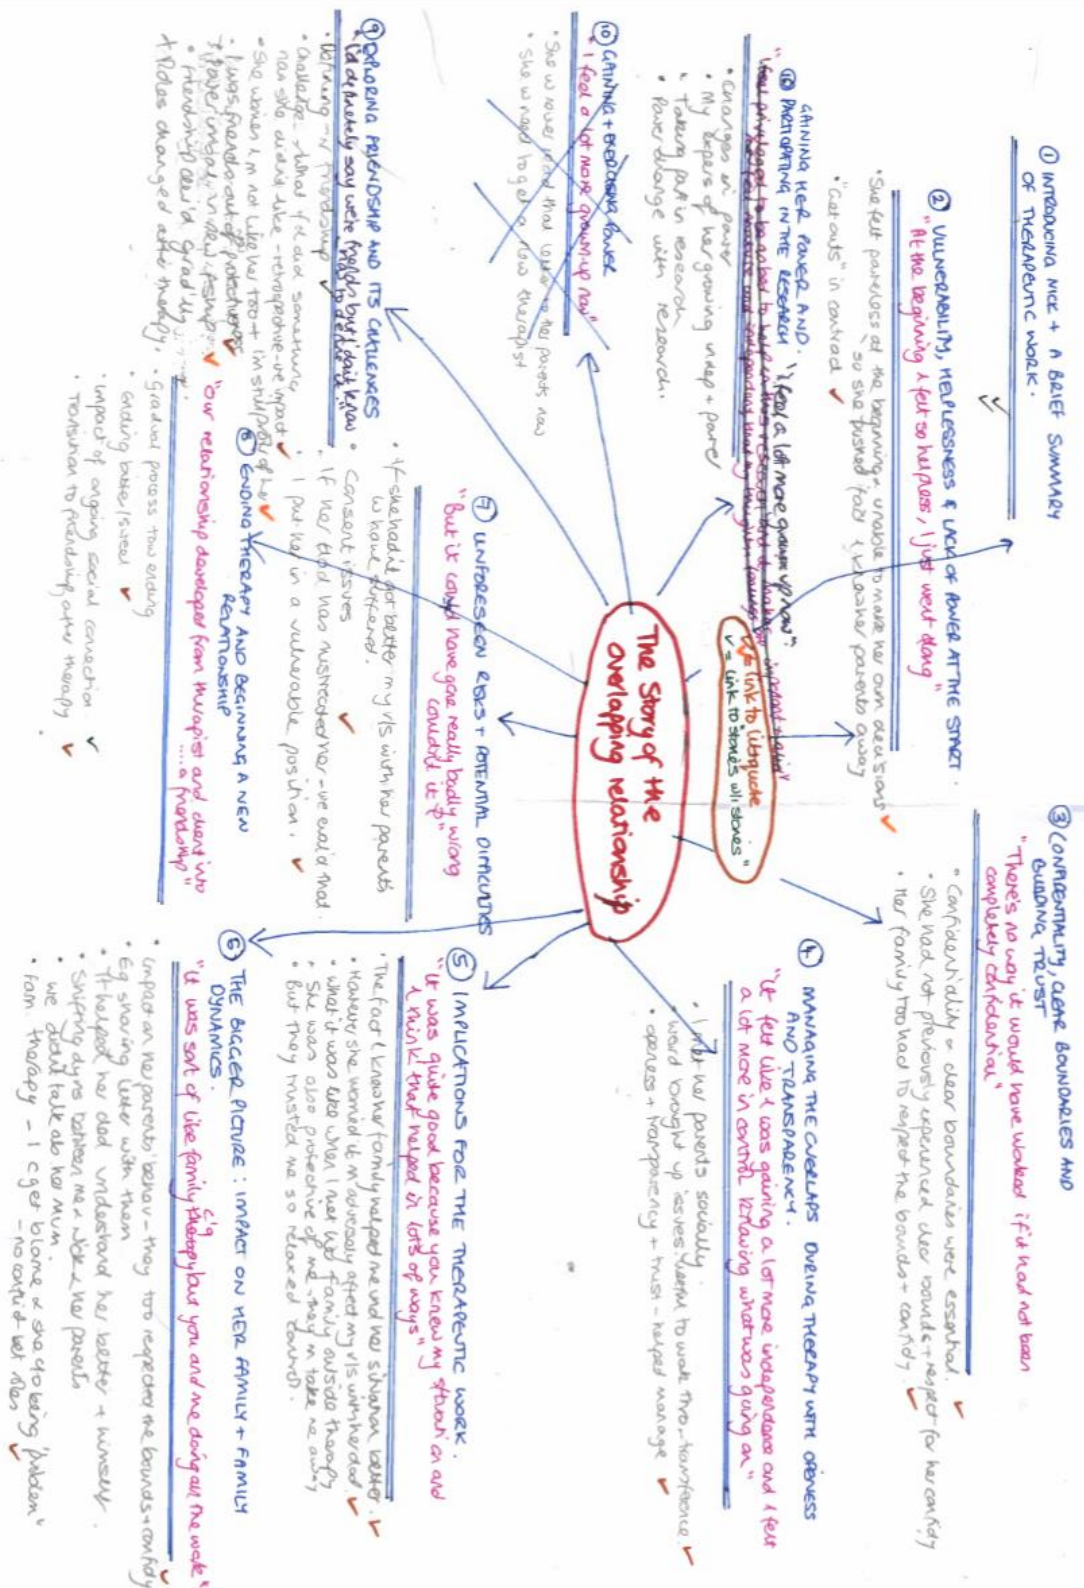 The Story of the
overlapping relationship
= link to lit + quote
✓ = link to stories w/i stories"
① INTRODUCING NICK + A BRIEF SUMMARY
OF THERAPEUTIC WORK.
② VULNERABILITY, HELPLESSNESS & LACK OF POWER AT THE START.
"At the beginning I felt so helpless, I just went along"
• She felt powerless at the beginning - unable to make her own decisions ✓
so she pushed fact I knew her parents away
• "Get outs" in contract ✓
③ CONFIDENTIALITY, CLEAR BOUNDARIES AND
BUILDING TRUST
"There's no way it would have worked if it had not been
completely confidential"
• Confidentiality & clear boundaries were essential. ✓
• She had not previously experienced clear bounds + respect for her confidy
• Her family too had to respect the bounds + confidy. ✓
④ MANAGING THE OVERLAPS DURING THERAPY WITH OPENESS
AND TRANSPARENCY.
"It felt like I was gaining a lot more independence and I felt
a lot more in control knowing what was going on"
• I met her parents socially.
brought up issues to work thro - transference. ✓
• openess + transparency + trust - helped manage ✓
⑤ IMPLICATIONS FOR THE THERAPEUTIC WORK.
"It was quite good because you knew my situation and
I think that helped in lots of ways"
• The fact I knew her family helped me und her situation better. ✓
• However she worried it m adversely affect my r/s with her dad. ✓
• What it was like when I met her family outside therapy
• She was also protective of me - they m take me away
• But they trusted me so relaxed control.
⑥ THE BIGGER PICTURE: IMPACT ON HER FAMILY + FAMILY
DYNAMICS.
"It was sort of like family therapy but you and me doing all the work"
• Impact on her parents' behav - they too respected the bounds + confidy ✓
• Eg sharing letter with them
• It helped her dad understand her better + himself.
• Shifting dyns between me & Nick & her parents
• We didn't talk ab her mum.
• Fam therapy - I c get blame & she go to being 'problem'
- no conflict bet roles ✓
⑦ UNFORESEEN RISKS + POTENTIAL DIFFICULTIES
"But it could have gone really badly wrong
couldn't it?"
• If she had not got better my r/s with her parents
w have differed.
• Consent issues ✓
• If her dad has mistreated her - we eval'd that.
• I put her in a vulnerable position. ✓
⑧ ENDING THERAPY AND BEGINNING A NEW
RELATIONSHIP
"our relationship developed from therapist and client into
.... a friendship"
• Gradual process tow ending
• Ending bitter/sweet ✓
• Impact of ongoing social connection ✓
• Transition to friendship after therapy ✓
⑨ EXPLORING FRIENDSHIP AND ITS CHALLENGES
"I'd definitely say we're friends but I don't know
how to define it"
• Defining - or friendship ✓
• Challenge - what if I did something
she didn't like - retrospective -ve impact ✓
• She worried I m not like her too + I'm still prof of her ✓
• I was friends out of
• Power imbal in new r/ship ✓
• Friendship dev'd grad'lly
+ Roles changed after therapy.
⑩ GAINING + EXERCISING POWER
"I feel a lot more grown up now"
• She w never
her parents now
• She w need to get a new therapist
⑩ GAINING HER POWER AND
PARTICIPATING IN THE RESEARCH
"I feel a lot more grown up now".
• Changes in power
• My expers of her growing indep + power
• Taking part in research
• Power change with research.